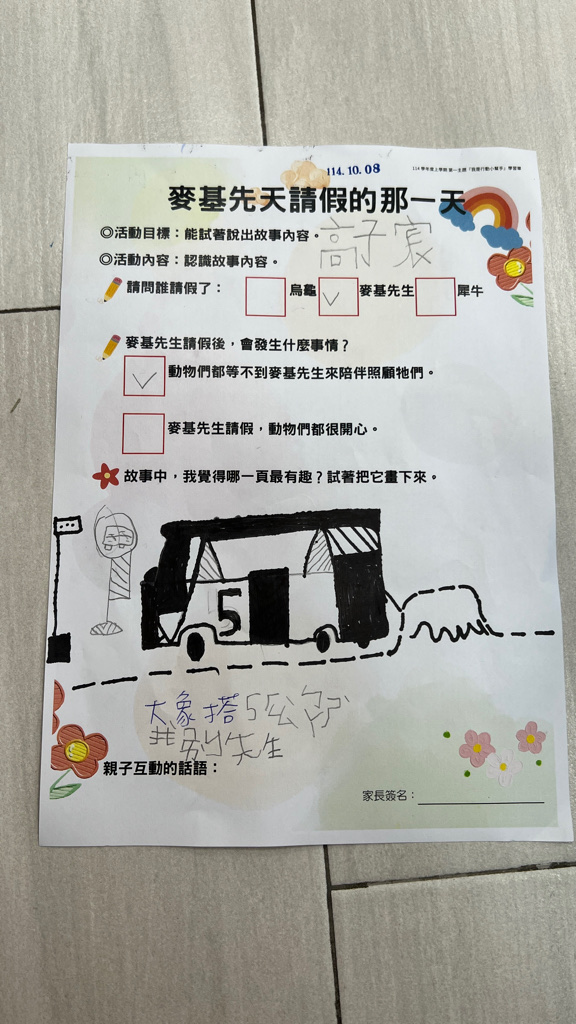 114.10.08
114 學年度上學期 第一主題「我是行動小幫手」學習單
麥基先天請假的那一天
◎活動目標：能試著說出故事內容。
高子宸
◎活動內容：認識故事內容。
請問誰請假了： 烏龜 麥基先生 犀牛
麥基先生請假後，會發生什麼事情？
動物們都等不到麥基先生來陪伴照顧牠們。
麥基先生請假，動物們都很開心。
故事中，我覺得哪一頁最有趣？試著把它畫下來。
5
大象搭5公
先生
親子互動的話語：
家長簽名：